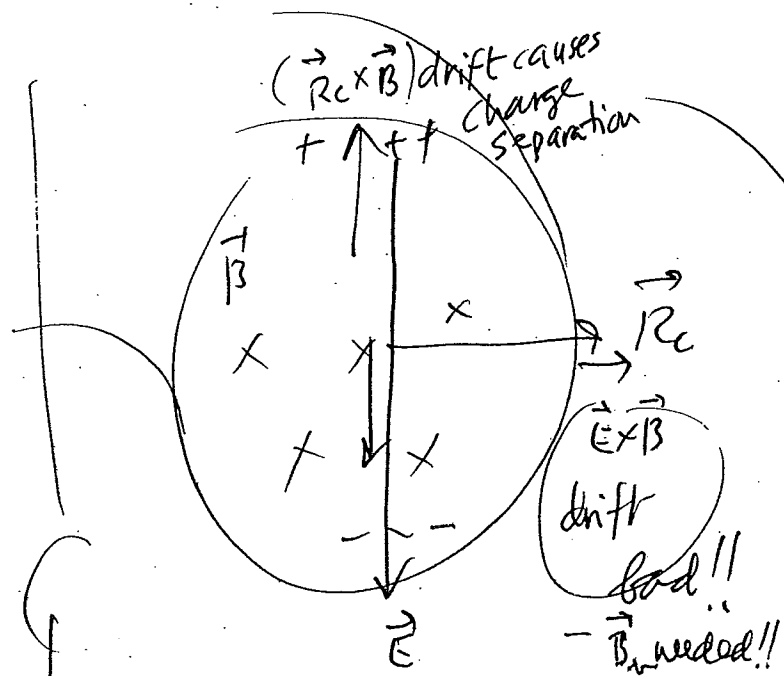 (R⃗c × B⃗) drift causes
charge
separation
+ + +
B⃗
x
X X
R⃗c
X X
E⃗ × B⃗
drift
bad!!
- - -
E⃗
- B⃗ needed!!